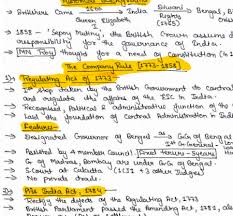 Historical Background
→ Britishers Came 1600 → Diwani Rights (1765) → Bengal, B
Queen Elizabeth
→ 1858 - 'Sepoy Mutiny', the British Crown assumes
responsibility for the Governance of India.
→ MN Roy : Thought for a need of Constitution
The Company Rule [1773-1858]
1) Regulating Act of 1773
→ 1st step taken by the British Government to Control
and regulate the affairs of the EIC in India
→ Recognised Political & administrative function of the
→ Laid the foundation of Central Administration in Ind
Features-
→ Designated Governor of Bengal as G.G of Bengal
→ Assisted by 4 member Council. Fixed tenure - 5 years
→ G of Madras, Bombay are under G.G of Bengal
→ S Court at Calcutta (1C.J + 3 other Judges)
→ No private trade.
2) Pits India Act, 1784
→ Rectify the defects of the Regulating Act, 1773
→ British Parliament passed the Amending Act, 1781, als